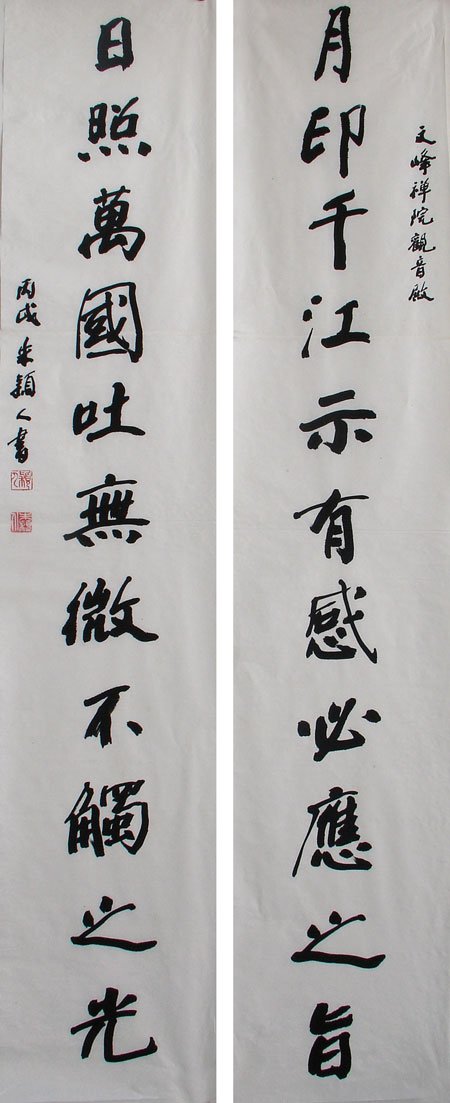 文峰禪院觀音殿
月印千江示有感必應之旨
日照萬國吐無微不觸之光
丙戌朱穎人書